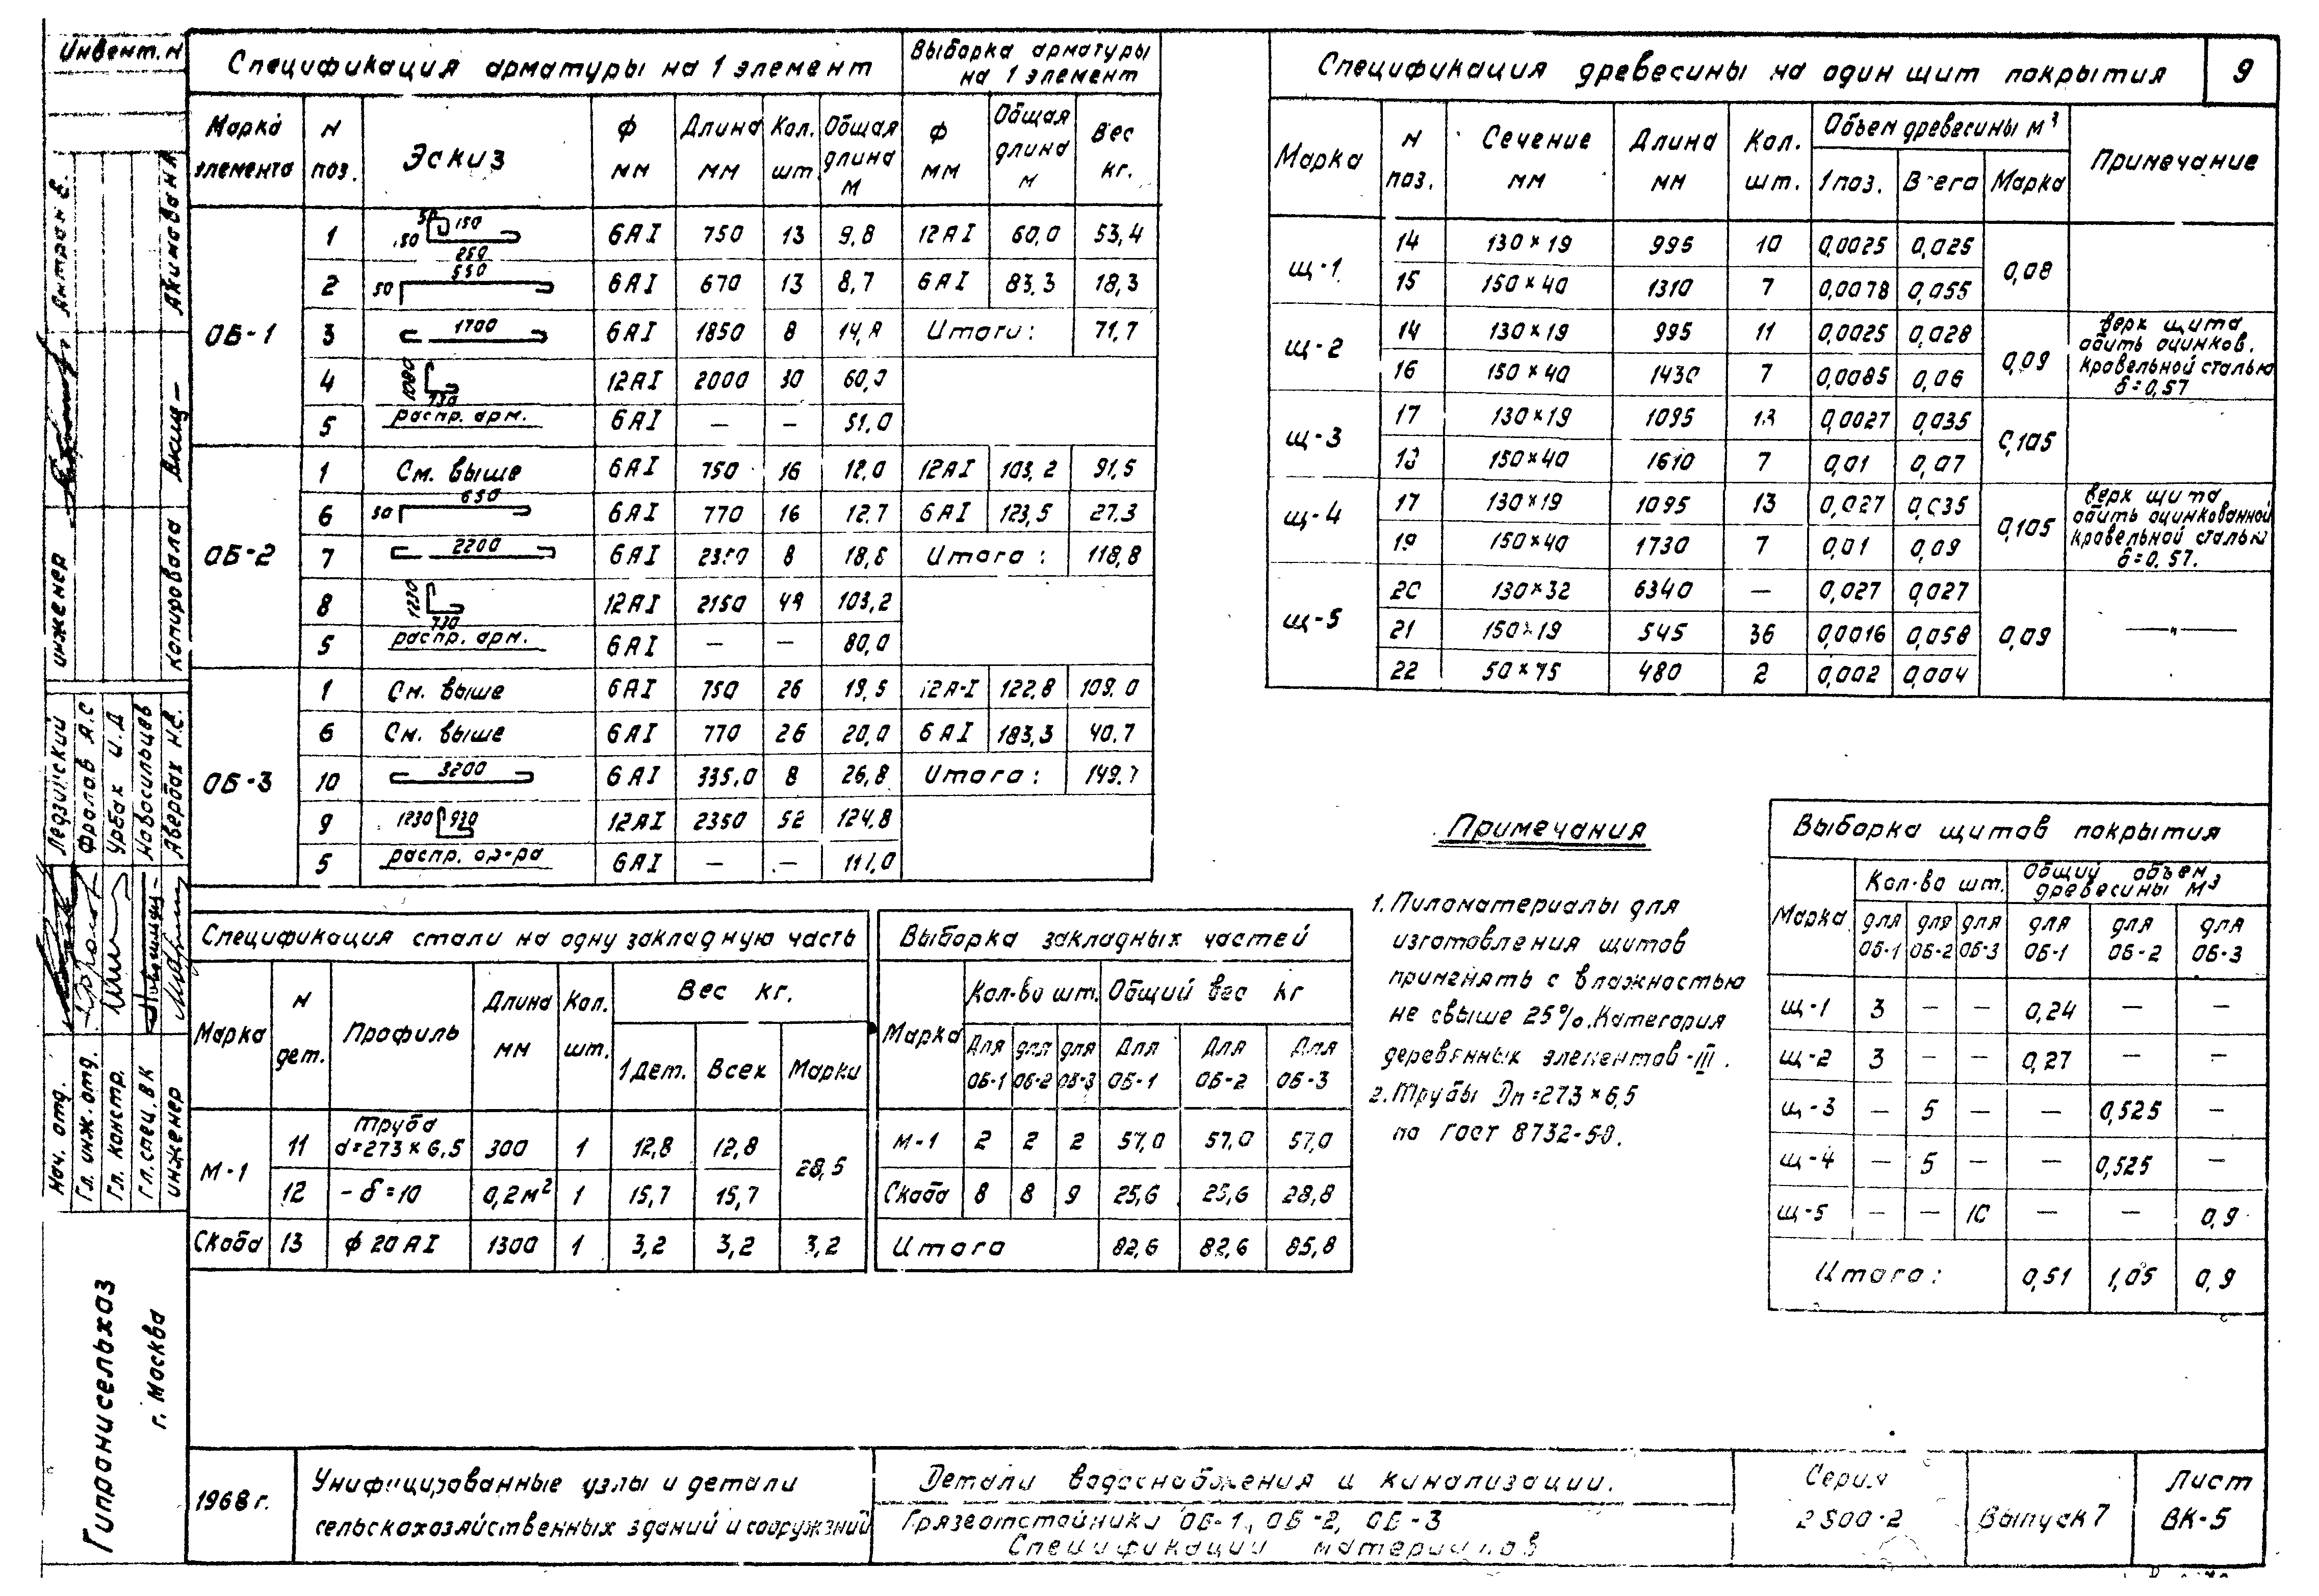 Инвент. N
Спецификация арматуры на 1 элемент
Выборка арматуры на 1 элемент
Марка элемента | N поз. | Эскиз | Ф мм | Длина мм | Кол. шт | Общая длина м | Ф мм | Общая длина м | Вес кг.
ОБ-1
1 | 50 150 150 250 | 6АI | 750 | 13 | 9,8 | 12АI | 60,0 | 53,4
2 | 50 550 | 6АI | 670 | 13 | 8,7 | 6АI | 83,3 | 18,3
3 | 1700 | 6АI | 1850 | 8 | 14,8 | Итого: | 71,7
4 | 1080 730 | 12АI | 2000 | 30 | 60,0
5 | распр. арм. | 6АI | — | — | 51,0
ОБ-2
1 | См. выше | 6АI | 750 | 16 | 12,0 | 12АI | 103,2 | 91,5
6 | 50 650 | 6АI | 770 | 16 | 12,7 | 6АI | 123,5 | 27,3
7 | 2200 | 6АI | 2350 | 8 | 18,8 | Итого: | 118,8
8 | 1230 730 | 12АI | 2150 | 48 | 103,2
5 | распр. арм. | 6АI | — | — | 80,0
ОБ-3
1 | См. выше | 6АI | 750 | 26 | 19,5 | 12А-I | 122,8 | 109,0
6 | См. выше | 6АI | 770 | 26 | 20,0 | 6АI | 183,3 | 40,7
10 | 3200 | 6АI | 335.0 | 8 | 26,8 | Итого: | 149,7
9 | 1230 930 | 12АI | 2350 | 52 | 124,8
5 | распр. ар-ра | 6АI | — | — | 117,0
Спецификация древесины на один щит покрытия
9
Марка | N поз. | Сечение мм | Длина мм | Кол. шт. | Объем древесины м³ | 1 поз. | Всего | Марка | Примечание
щ-1
14 | 130×19 | 995 | 10 | 0,0025 | 0,025 | 0,08
15 | 150×40 | 1310 | 7 | 0,0078 | 0,055
щ-2
14 | 130×19 | 995 | 11 | 0,0025 | 0,028 | 0,09
16 | 150×40 | 1430 | 7 | 0,0085 | 0,06
верх щита
обить оцинков.
кровельной сталью
δ=0,57
щ-3
17 | 130×19 | 1095 | 13 | 0,0027 | 0,035 | 0,105
18 | 150×40 | 1610 | 7 | 0,01 | 0,07
щ-4
17 | 130×19 | 1095 | 13 | 0,027 | 0,035 | 0,105
19 | 150×40 | 1730 | 7 | 0,01 | 0,09
верх щита
обить оцинкованной
кровельной сталью
δ=0,57.
щ-5
20 | 130×32 | 6340 | — | 0,027 | 0,027 | 0,09 | —"—
21 | 150×19 | 545 | 36 | 0,0016 | 0,058
22 | 50×75 | 480 | 2 | 0,002 | 0,004
Спецификация стали на одну закладную часть
Марка | N дет. | Профиль | Длина мм | Кол. шт. | Вес кг. | 1 дет. | Всех | Марки
М-1
11 | Труба d=273×6,5 | 300 | 1 | 12,8 | 12,8 | 28,5
12 | -δ=10 | 0,2м² | 1 | 15,7 | 15,7
Скоба | 13 | ф 20АI | 1300 | 1 | 3,2 | 3,2 | 3,2
Выборка закладных частей
Марка | Кол-во шт. | Общий вес кг
Для ОБ-1 | для ОБ-2 | для ОБ-3 | Для ОБ-1 | Для ОБ-2 | Для ОБ-3
М-1 | 2 | 2 | 2 | 57,0 | 57,0 | 57,0
Скоба | 8 | 8 | 9 | 25,6 | 25,6 | 28,8
Итого | 82,6 | 82,6 | 85,8
Примечания
1. Пиломатериалы для
изготовления щитов
применять с влажностью
не свыше 25%. Категория
деревянных элементов-III.
2. Трубы Dн=273×6,5
по ГОСТ 8732-58.
Выборка щитов покрытия
Марка | Кол-во шт. | Общий объем древесины м³
для ОБ-1 | для ОБ-2 | для ОБ-3 | для ОБ-1 | для ОБ-2 | для ОБ-3
щ-1 | 3 | — | — | 0,24 | — | —
щ-2 | 3 | — | — | 0,27 | — | —
щ-3 | — | 5 | — | — | 0,525 | —
щ-4 | — | 5 | — | — | 0,525 | —
щ-5 | — | — | 10 | — | — | 0,9
Итого: | 0,51 | 1,05 | 0,9
инженер
Антрон Е.
Копировала
Акимова Н
Нач. отд.
Ледзинский
Гл. инж. отд.
Фролов А.С
Гл. констр.
Урбах И.Д
Гл. спец. ВК
Новосильцев
инженер
Авербах Н.В.
Гипронисельхоз
г. Москва
1968 г.
Унифицированные узлы и детали
сельскохозяйственных зданий и сооружений
Детали водоснабжения и канализации.
Грязеотстойники ОБ-1, ОБ-2, ОБ-3
Спецификации материалов
Серия
2.800-2
Выпуск 7
Лист
ВК-5